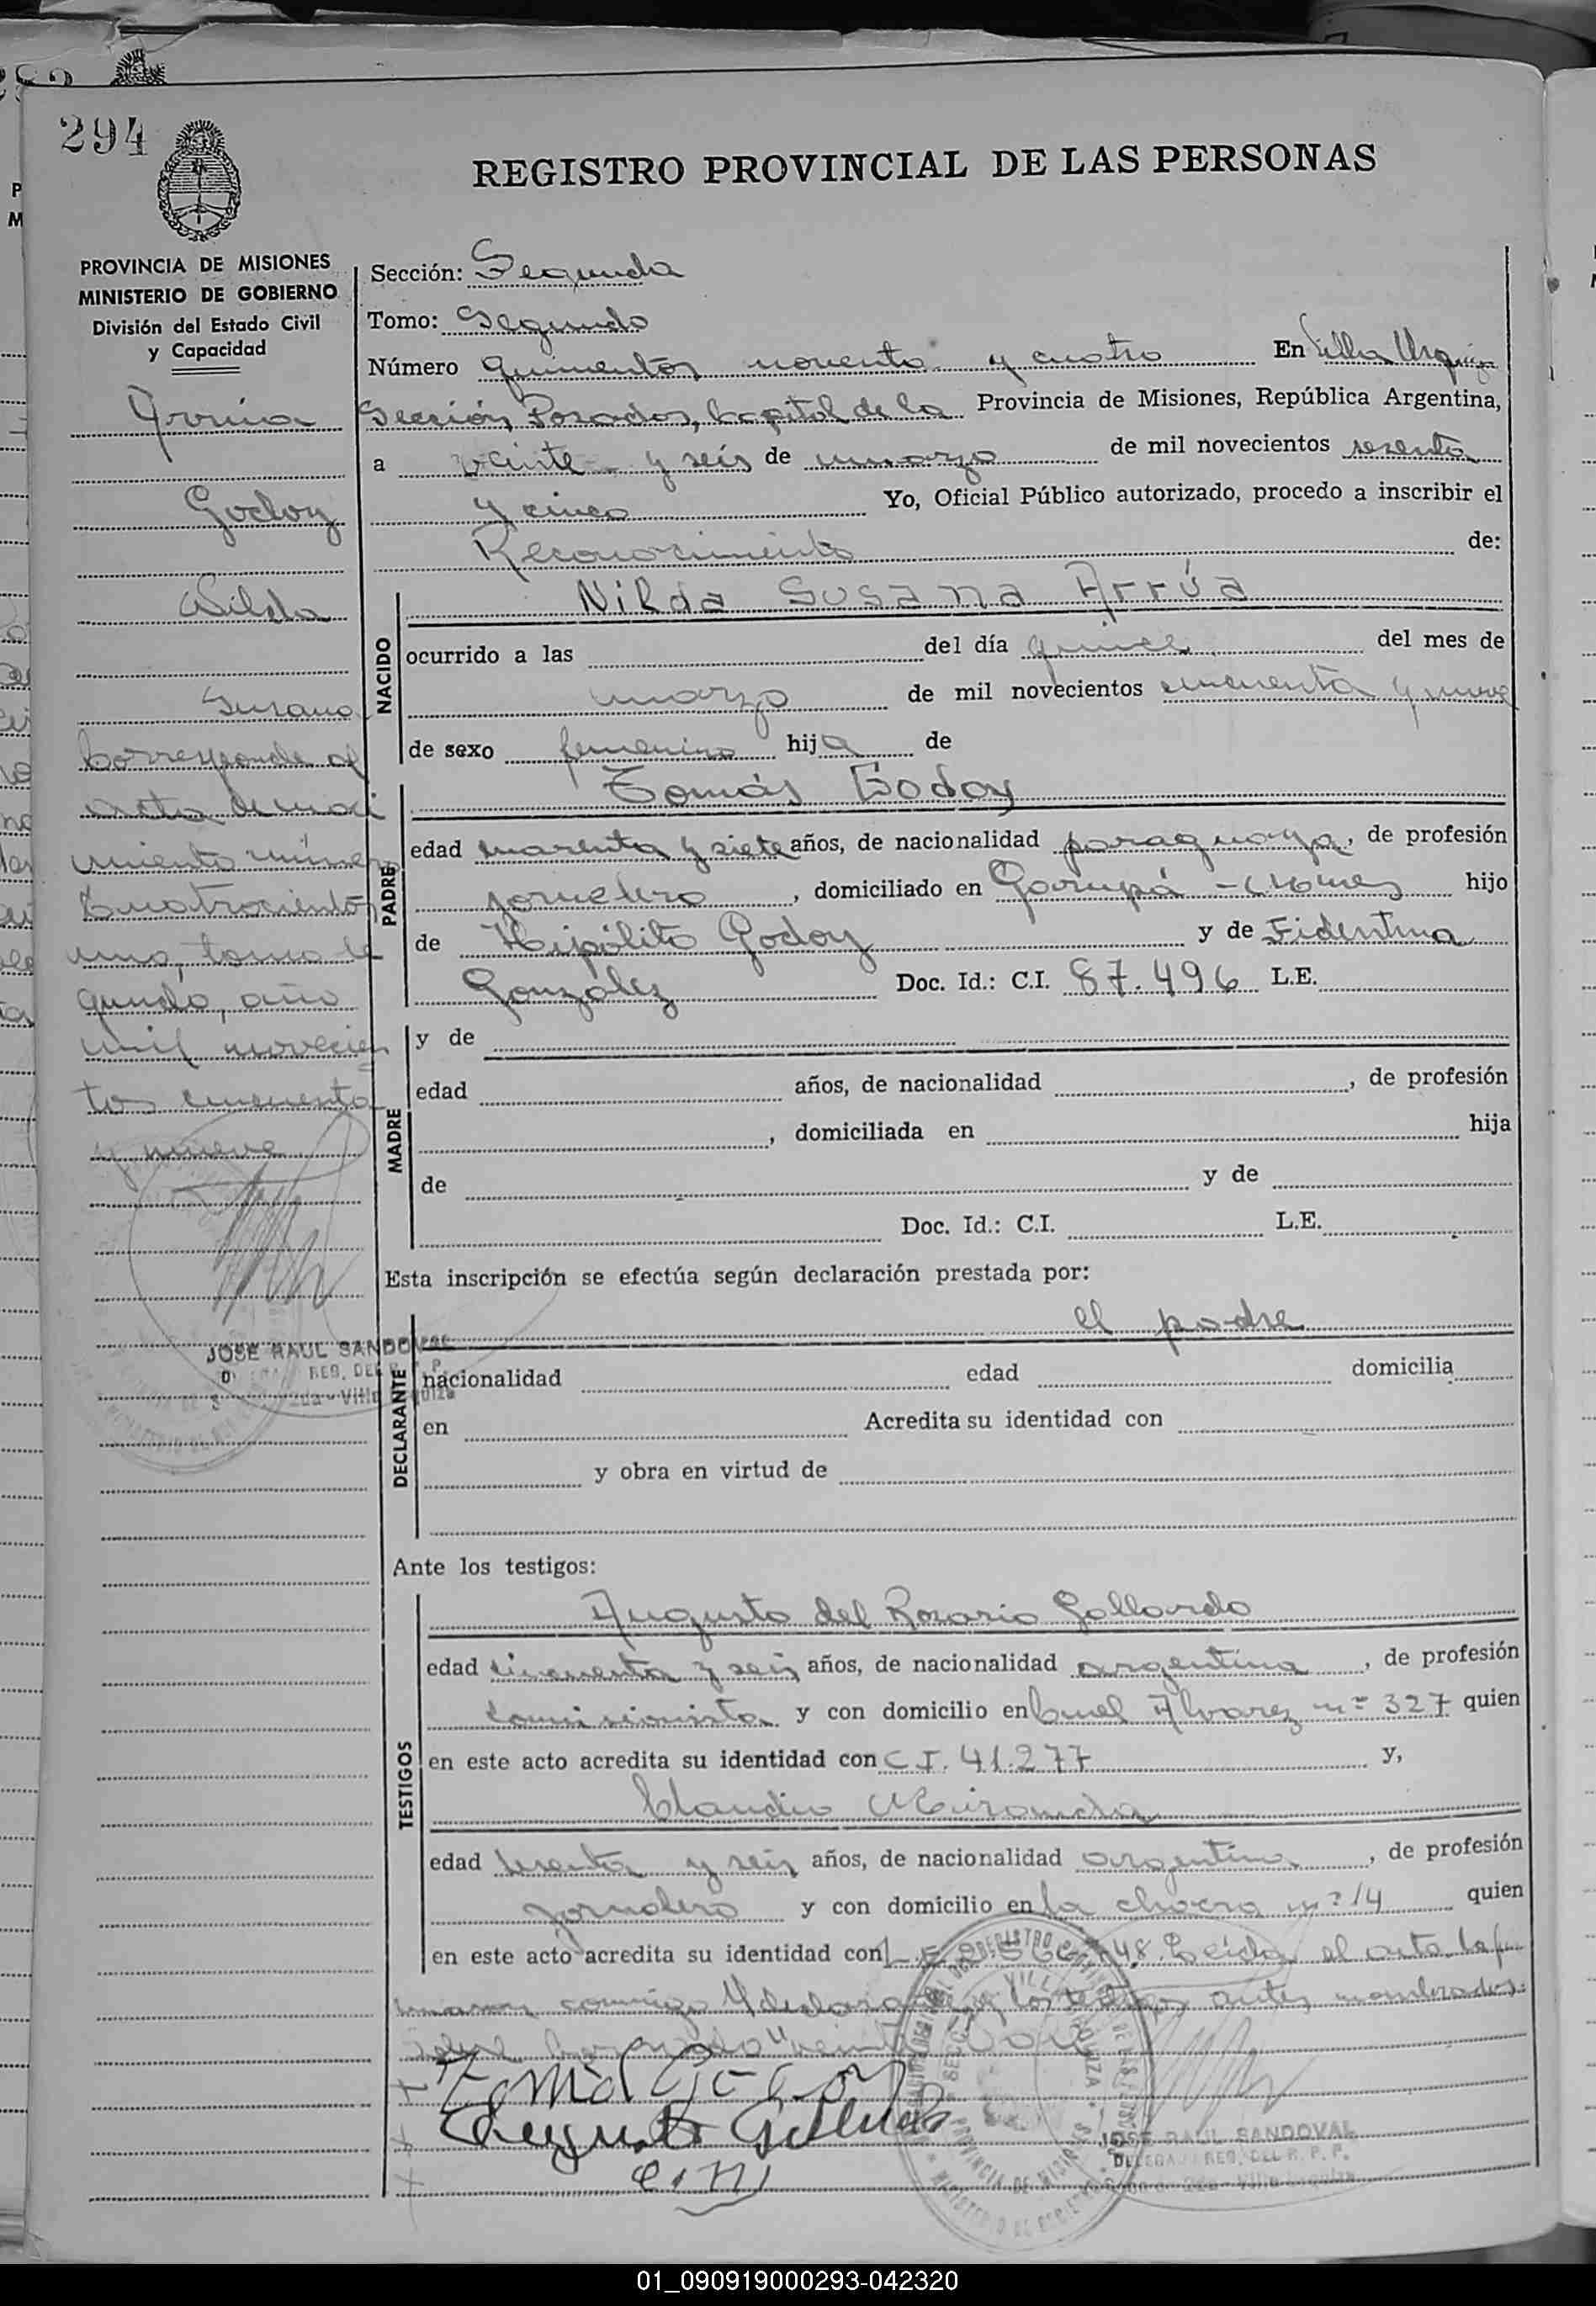 294
REGISTRO PROVINCIAL DE LAS PERSONAS
PROVINCIA DE MISIONES
MINISTERIO DE GOBIERNO
División del Estado Civil
y Capacidad
Arrúa
Godoy
Nilda
Susana
Corresponde al
acta de naci
miento número
Cuatrocientos
uno, tomo Se
gundo, año
mil novecien
tos cincuenta
y nueve
JOSE RAUL SANDOVAL
Sección: Segunda
Tomo: Segundo
Número quinientos noventa y cuatro En Villa Urquiza
Sección Posadas, Capital de la Provincia de Misiones, República Argentina,
a veinte y seis de marzo de mil novecientos sesenta
y cinco Yo, Oficial Público autorizado, procedo a inscribir el
Reconocimiento de:
NACIDO
Nilda Susana Arrúa
ocurrido a las del día quince del mes de
marzo de mil novecientos cincuenta y nueve
de sexo femenino hija de
PADRE
Tomás Godoy
edad cuarenta y siete años, de nacionalidad paraguaya, de profesión
jornalero, domiciliado en Garupá - Misiones hijo
de Hipólito Godoy y de Fidentina
González Doc. Id.: C.I. 87.496 L.E.
MADRE
y de
edad años, de nacionalidad , de profesión
, domiciliada en hija
de y de
Doc. Id.: C.I. L.E.
Esta inscripción se efectúa según declaración prestada por:
DECLARANTE
el padre
nacionalidad edad domicilia
en Acredita su identidad con
y obra en virtud de
Ante los testigos:
TESTIGOS
Augusto del Rosario Gallardo
edad cincuenta y seis años, de nacionalidad argentina, de profesión
comisionista y con domicilio en Cnel Alvarez nº 327 quien
en este acto acredita su identidad con C.I. 41.277 y,
Claudio Miranda
edad treinta y seis años, de nacionalidad argentina, de profesión
jornalero y con domicilio en la chacra nº 14 quien
en este acto acredita su identidad con L.E. Leída el acta la fir
maron conmigo y los testigos antes nombrados.
Tomás Godoy
Augusto Gallardo
C. M
JOSE RAUL SANDOVAL
DELEGA REG. DEL R. P. P.
2da - Villa Urquiza
PROVINCIA DE MISIONES
01_090919000293-042320